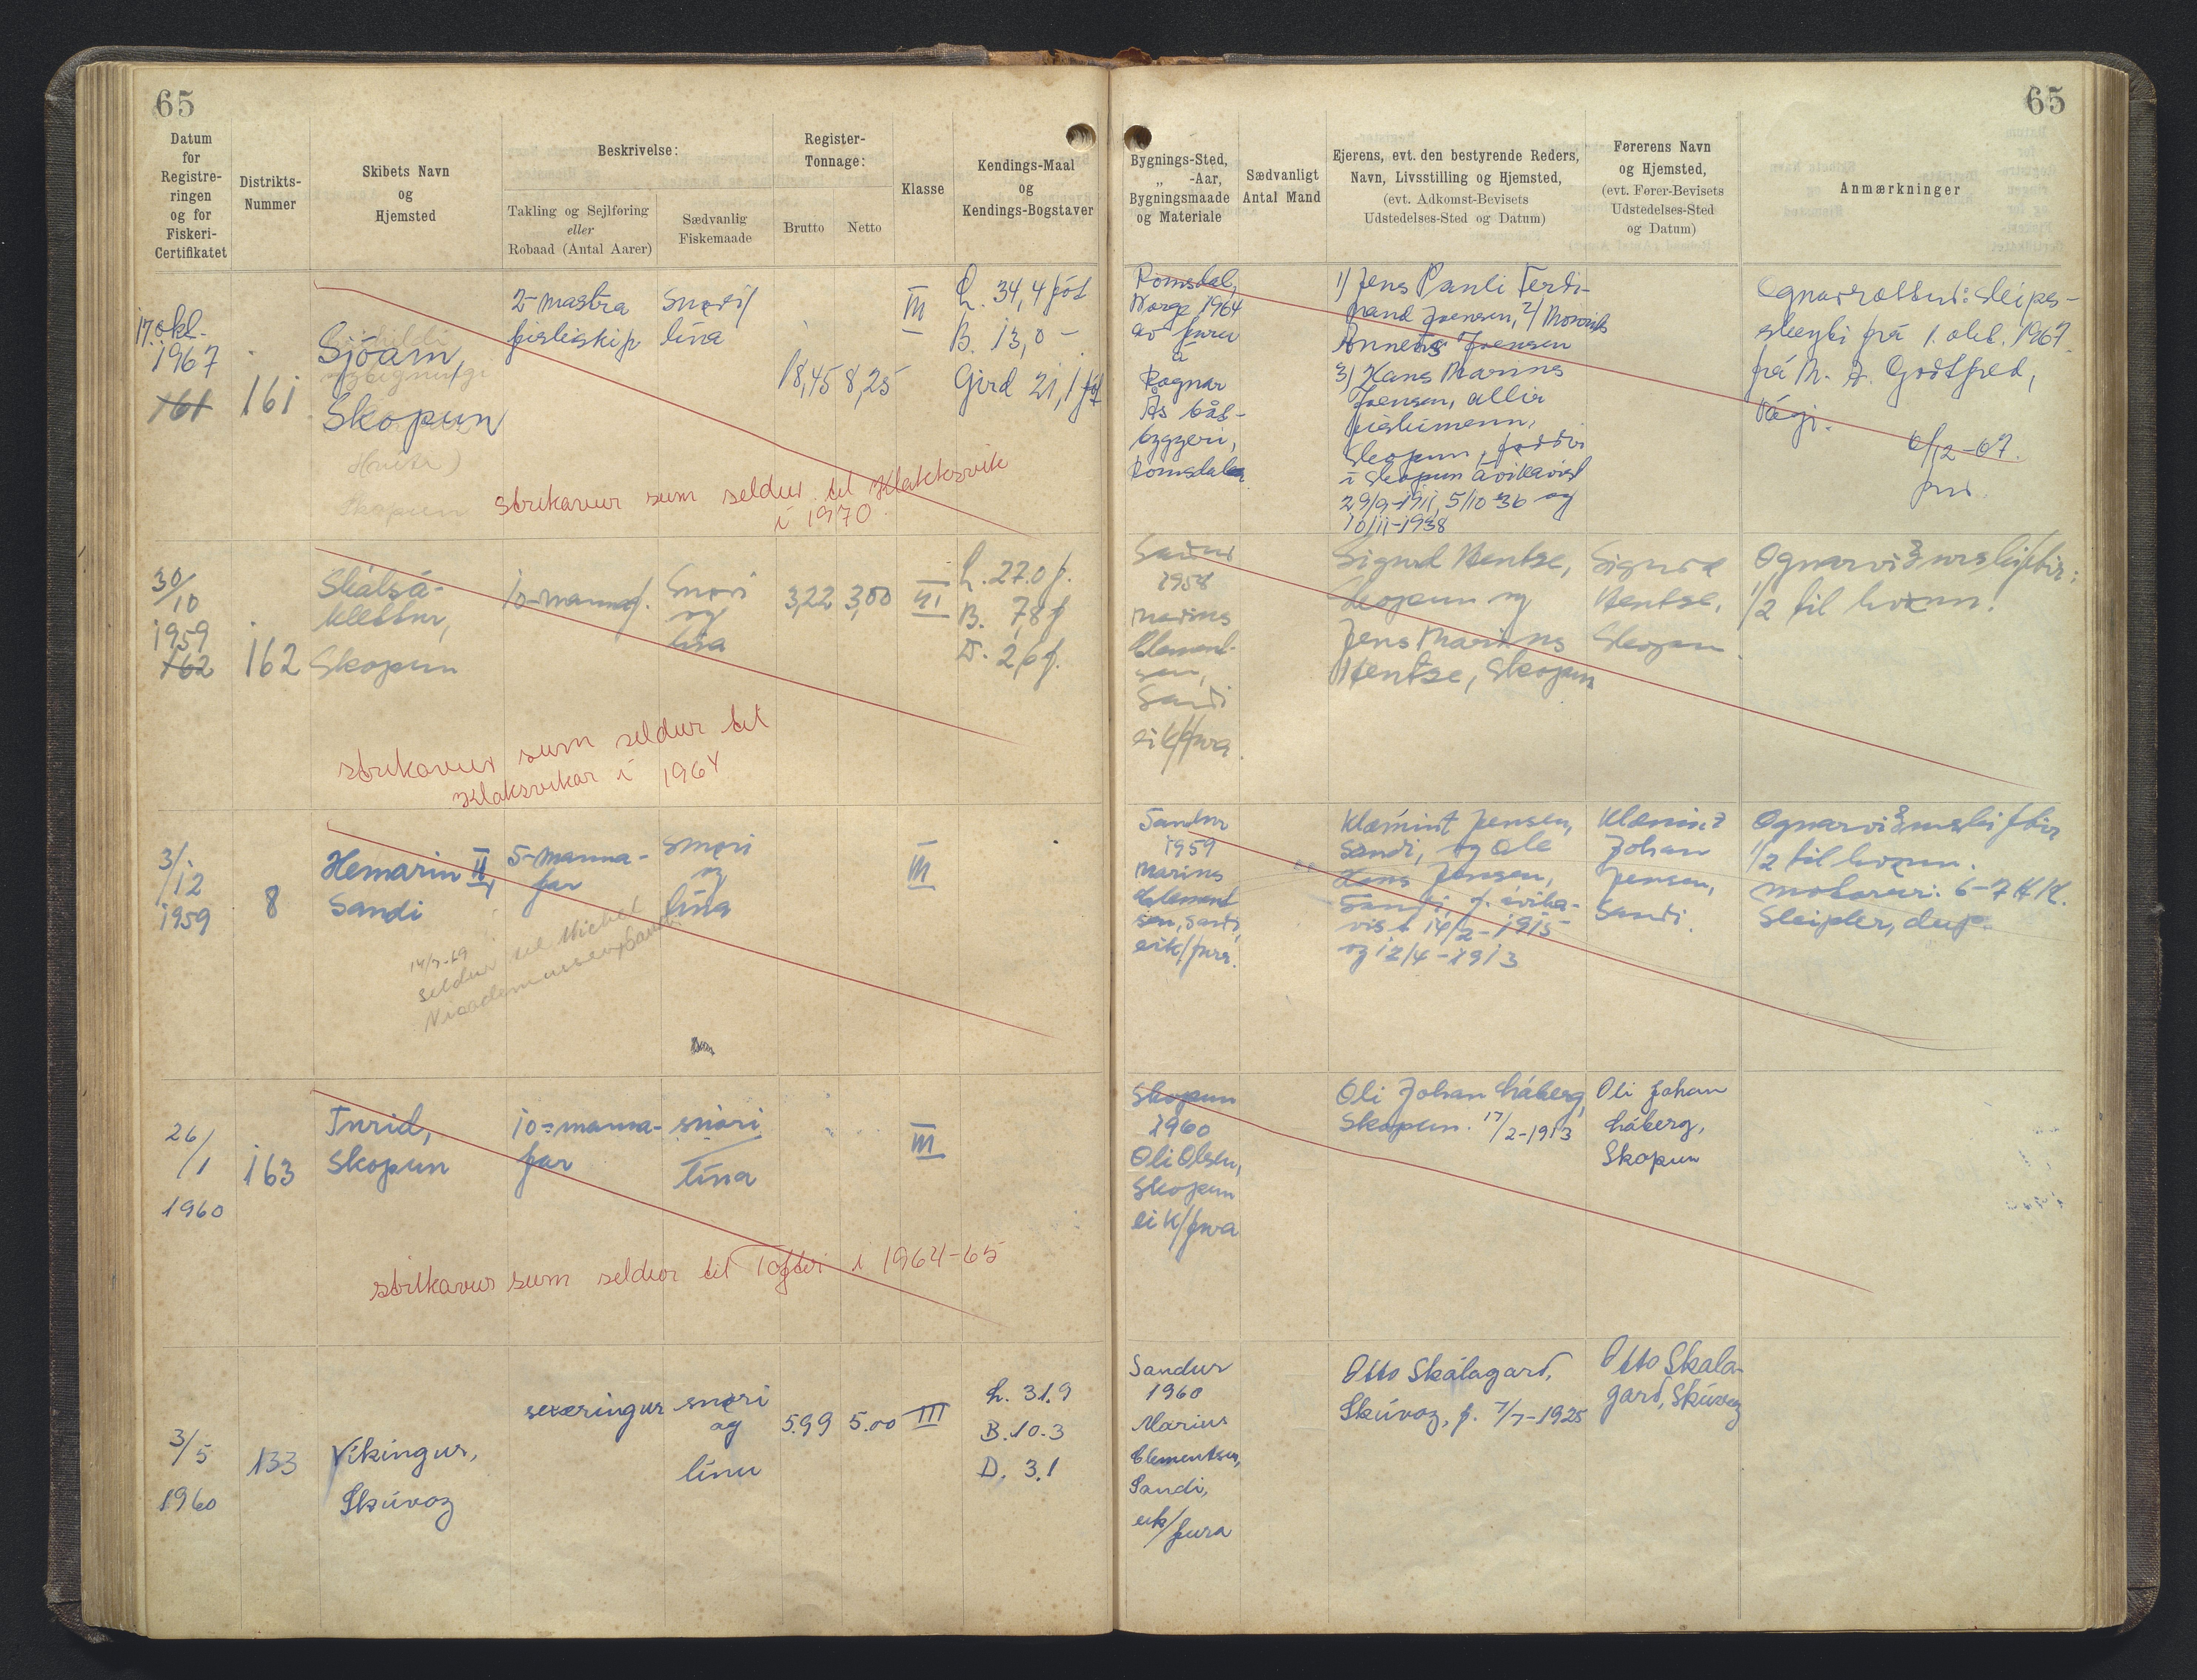 65
65
Datum
for
Registre-
ringen
og for
Fiskeri-
Certifikatet
Distrikts-
Nummer
Skibets Navn
og
Hjemsted
Beskrivelse:
Takling og Sejlføring
eller
Robaad (Antal Aarer)
Sædvanlig
Fiskemaade
Register-
Tonnage:
Brutto
Netto
Klasse
Kendings-Maal
og
Kendings-Bogstaver
Bygnings-Sted,
„ -Aar,
Bygningsmaade
og Materiale
Sædvanligt
Antal Mand
Ejerens, evt. den bestyrende Reders,
Navn, Livsstilling og Hjemsted,
(evt. Adkomst-Bevisets
Udstedelses-Sted og Datum)
Førerens Navn
og Hjemsted,
(evt. Fører-Bevisets
Udstedelses-Sted
og Datum)
Anmærkninger
17. okt.
1967
161
161
Sjóarn,
Skopun
Skopun
2-mastra
fiskiskip
snøri/
lína
18,45
8,25
III
L. 34,4 fót
B. 13,0 -
Gird 21,1 fót
Romsdal,
Norge 1964
av furu
á
Ragnar
Ås båt-
byggeri,
Romsdalen
1) Jens Pauli Ferdi-
nand Joensen, 2)
Joensen
3) Hans Marius
Joensen, allir
fiskimenn,
Skopun, føddir
í Skopun ávikavist
29/9-1911, 5/10-36 og
10/11-1938
Ognarrættur: Keips-
skeyti frá 1. okt. 1967
frá M. A. Godtfred,
Vági.
6/12-67.
strikavur sum seldur til Klakksvik
í 1970
30/
10
1959
162
162
Skálsá-
klettur,
Skopun
10-mannaf.
Snøri
og
lína
3,22
3,00
III
L. 27.0 f.
B. 7,8 f
D. 2,6 f.
Sandur
1958
Marius
Clement-
sen,
Sandi
eik/fura.
Sigurd Hentze,
Skopun og
Jens Marius
Hentze, Skopun
Sigurd
Hentze,
Skopun.
Ognarviðurskiftir:
1/2 til hvønn.
strikavur sum seldur til
Klaksvikar í 1964
3/
12
1959
8
Hemarin II,
Sandi
5-manna-
far
snøri
og
lína
III
Sandur
1959
Marius
Clement
sen, Sandi,
eik/fura.
Klæmint Jensen,
Sandi, og Óle
Hans Jensen,
Sandi, f. ávika-
vist 14/2-1915
og 12/4-1913
Klæmint
Johan
Jensen,
Sandi.
Ognarviðurskiftir
1/2 til hvønn.
motorur: 6-7 H.K.
Sleipner, dup.
14/7-69
seldur til Michal
Nicodemussen, Sandi
26/
1
1960
163
Turid,
Skopun
10-manna-
far
snøri
lína
III
Skopun
1960
Oli Olsen,
Skopun
eik/fura
Oli Johan Háberg,
Skopun. 17/2-1913
Oli Johan
Háberg,
Skopun
strikavur sum seldur til Toftir í 1964-65
3/
5
1960
133
Víkingur,
Skúvoy
sexæringur
snøri
og
línu
5.99
5.00
III
L. 31.9
B. 10.3
D. 3.1
Sandur
1960
Marius
Clementsen,
Sandi,
eik/
fura
Otto Skálagard,
Skúvoy, f. 7/7-1925
Otto Skála-
gard, Skúvoy